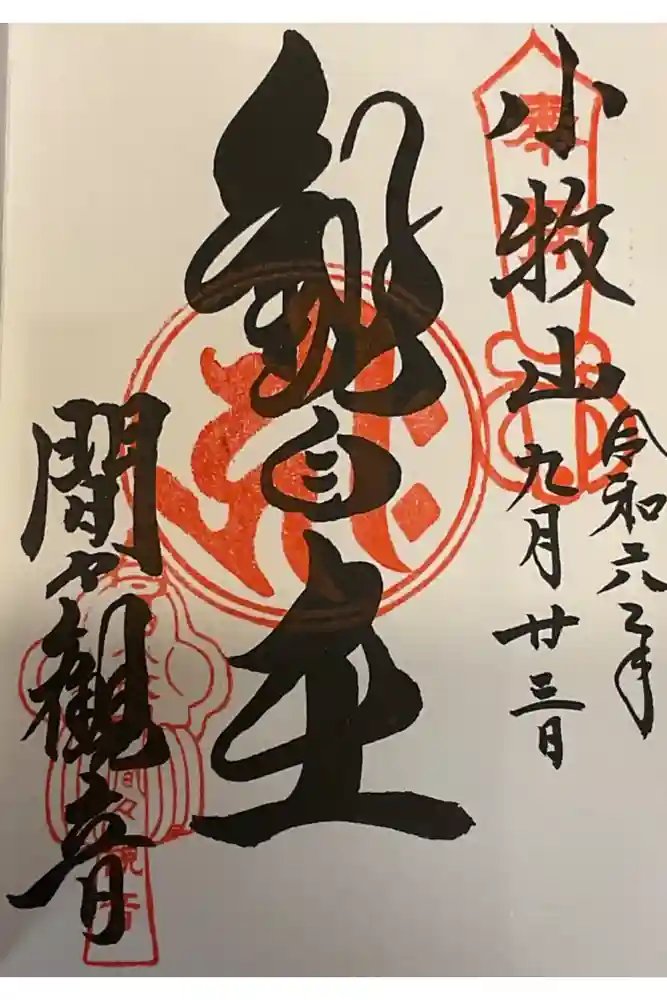 奉拝
小牧山
令和六年
九月廿三日
観自在
間々観音
間々観音